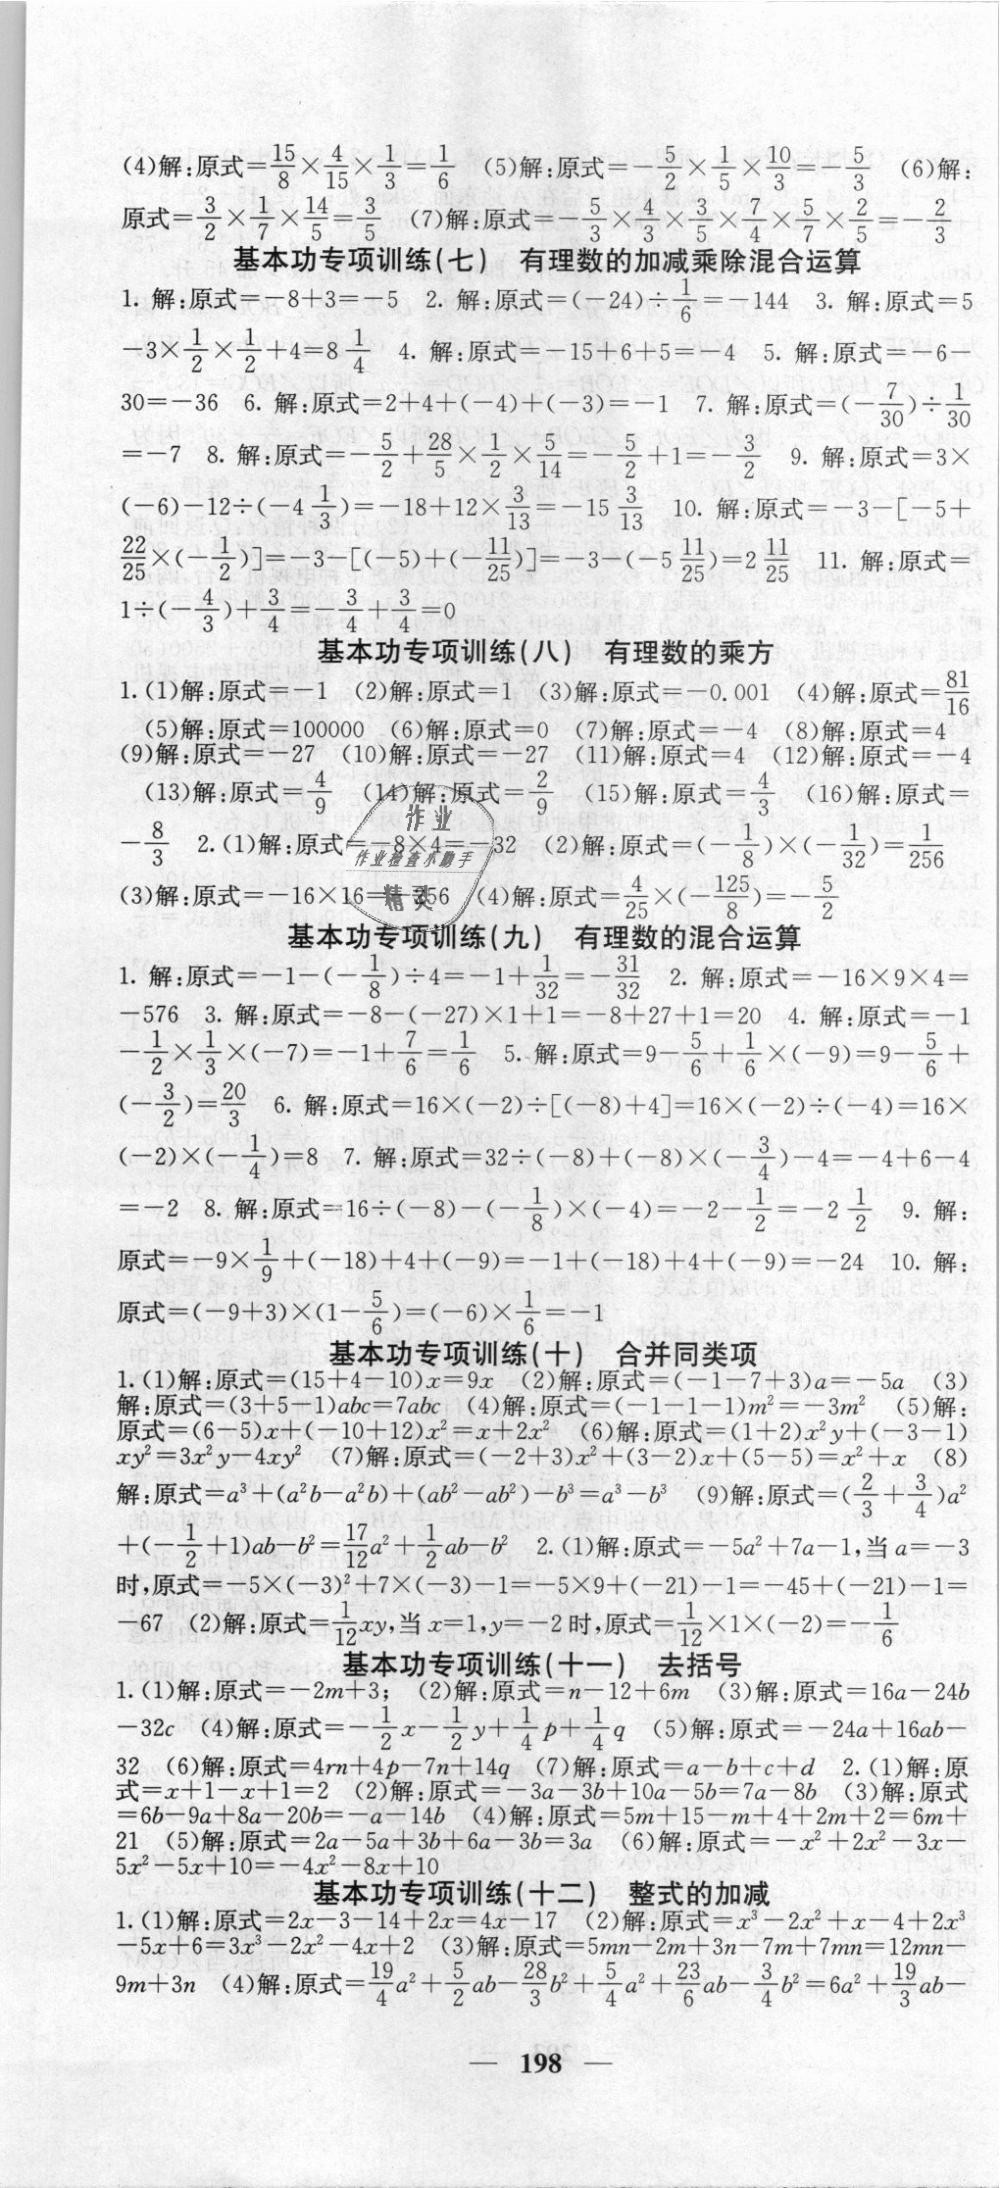 (4)解:原式=15/8×4/15×1/3=1/6 (5)解:原式=-5/2×1/5×10/3=-5/3 (6)解:
原式=3/2×1/7×14/5=3/5 (7)解:原式=-5/3×4/3×3/5×7/4×5/7×2/5=-2/3
基本功专项训练(七) 有理数的加减乘除混合运算
1. 解:原式=-8+3=-5 2. 解:原式=(-24)÷1/6=-144 3. 解:原式=5
-3×1/2×1/2+4=8 1/4 4. 解:原式=-15+6+5=-4 5. 解:原式=-6-
30=-36 6. 解:原式=2+4+(-4)+(-3)=-1 7. 解:原式=(-7/30)÷1/30
=-7 8. 解:原式=-5/2+28/5×1/2×5/14=-5/2+1=-3/2 9. 解:原式=3×
(-6)-12÷(-4 1/3)=-18+12×3/13=-15 3/13 10. 解:原式=-3-[-5+
22/25×(-1/2)]=-3-[(-5)+(-11/25)]=-3-(-5 11/25)=2 11/25 11. 解:原式=
1÷(-4/3)+3/4=-3/4+3/4=0
基本功专项训练(八) 有理数的乘方
1. (1)解:原式=-1 (2)解:原式=1 (3)解:原式=-0.001 (4)解:原式=81/16
(5)解:原式=100000 (6)解:原式=0 (7)解:原式=-4 (8)解:原式=4
(9)解:原式=-27 (10)解:原式=-27 (11)解:原式=4 (12)解:原式=-4
(13)解:原式=4/9 (14)解:原式=2/9 (15)解:原式=4/3 (16)解:原式=
-8/3 2. (1)解:原式=-8×4=-32 (2)解:原式=(-1/8)×(-1/32)=1/256
(3)解:原式=-16×16=-256 (4)解:原式=4/25×(-125/8)=-5/2
作业
作业检查小助手
精灵
基本功专项训练(九) 有理数的混合运算
1. 解:原式=-1-(-1/8)÷4=-1+1/32=-31/32 2. 解:原式=-16×9×4=
-576 3. 解:原式=-8-(-27)×1+1=-8+27+1=20 4. 解:原式=-1
-1/2×1/3×(-7)=-1+7/6=1/6 5. 解:原式=9-5/6+1/6×(-9)=9-5/6+
(-3/2)=20/3 6. 解:原式=16×(-2)÷[(-8)+4]=16×(-2)÷(-4)=16×
(-2)×(-1/4)=8 7. 解:原式=32÷(-8)+(-8)×(-3/4)-4=-4+6-4
=-2 8. 解:原式=16÷(-8)-(-1/8)×(-4)=-2-1/2=-2 1/2 9. 解:
原式=-9×1/9+(-18)+4+(-9)=-1+(-18)+4+(-9)=-24 10. 解:
原式=(-9+3)×(1-5/6)=(-6)×1/6=-1
基本功专项训练(十) 合并同类项
1. (1)解:原式=(15+4-10)x=9x (2)解:原式=(-1-7+3)a=-5a (3)
解:原式=(3+5-1)abc=7abc (4)解:原式=(-1-1-1)m²=-3m² (5)解:
原式=(6-5)x+(-10+12)x²=x+2x² (6)解:原式=(1+2)x²y+(-3-1)
xy²=3x²y-4xy² (7)解:原式=(-2+3)x²+(3-2)x+(5-5)=x²+x (8)
解:原式=a³+(a²b-a²b)+(ab²-ab²)-b³=a³-b³ (9)解:原式=(2/3+3/4)a²
+(-1/2+1)ab-b²=17/12a²+1/2ab-b² 2. (1)解:原式=-5a²+7a-1,当a=-3
时,原式=-5×(-3)²+7×(-3)-1=-5×9+(-21)-1=-45+(-21)-1=
-67 (2)解:原式=1/12xy,当x=1,y=-2时,原式=1/12×1×(-2)=-1/6
基本功专项训练(十一) 去括号
1. (1)解:原式=-2m+3; (2)解:原式=n-12+6m (3)解:原式=16a-24b
-32c (4)解:原式=-1/2x-1/2y+1/4p+1/4q (5)解:原式=-24a+16ab-
32 (6)解:原式=4rn+4p-7n+14q (7)解:原式=a-b+c+d 2. (1)解:原
式=x+1-x+1=2 (2)解:原式=-3a-3b+10a-5b=7a-8b (3)解:原式
=6b-9a+8a-20b=-a-14b (4)解:原式=5m+15-m+4+2m+2=6m+
21 (5)解:原式=2a-5a+3b+6a-3b=3a (6)解:原式=-x²+2x²-3x-
5x²-5x+10=-4x²-8x+10
基本功专项训练(十二) 整式的加减
1. (1)解:原式=2x-3-14+2x=4x-17 (2)解:原式=x³-2x²+x-4+2x³
-5x+6=3x³-2x²-4x+2 (3)解:原式=5mn-2m+3n-7m+7mn=12mn-
9m+3n (4)解:原式=19/4a²+5/2ab-28/3b²+5/4a²+23/6ab-3/4b²=6a²+19/3ab-
— 198 —